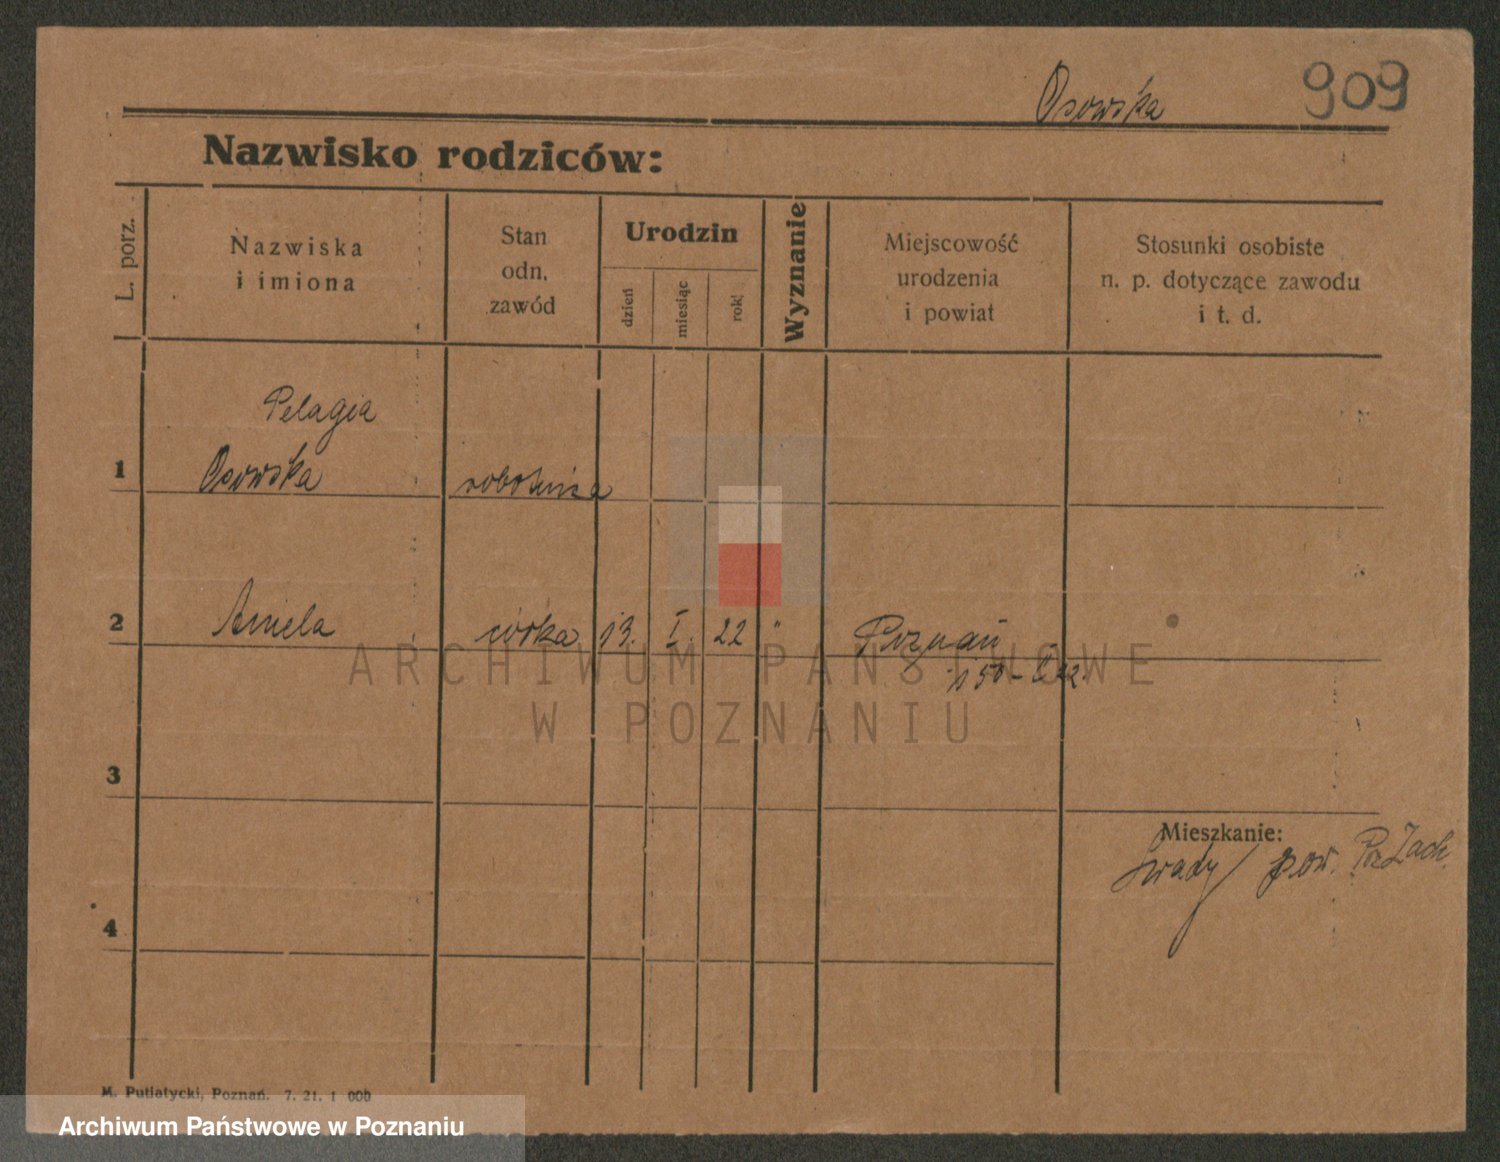 Osowska 909
Nazwisko rodziców:
L. porz.
Nazwiska
i imiona
Stan
odn.
zawód
Urodzin
dzień
miesiąc
rok
Wyznanie
Miejscowość
urodzenia
i powiat
Stosunki osobiste
n. p. dotyczące zawodu
i t. d.
Pelagia
1 Osowska robotnica
2 Aniela córka 13. I. 22 " Poznań
ARCHIWUM PAŃSTWOWE
W POZNANIU
3
Mieszkanie:
pow. Poz Zach
4
M. Putiatycki, Poznań. 7. 21. 1 000
Archiwum Państwowe w Poznaniu